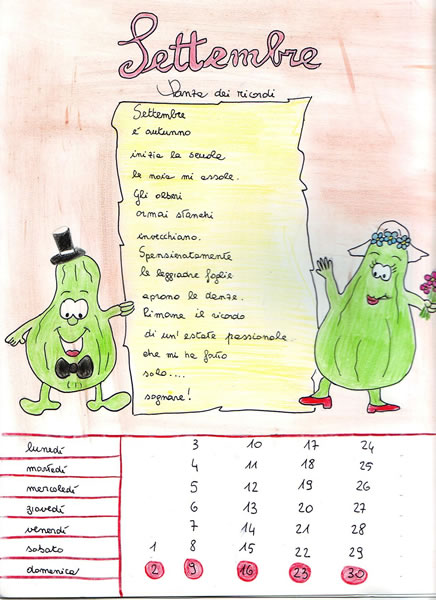 Settembre
Danza dei ricordi
Settembre
é autunno
inizia la scuola
la noia mi assale.
Gli alberi
ormai stanchi
invecchiano.
Spensieratamente
le leggiadre foglie
aprono le danze.
Rimane il ricordo
di un'estate passionale
che mi ha fatto
solo....
sognare!
lunedí 3 10 17 24
martedí 4 11 18 25
mercoledí 5 12 19 26
giovedí 6 13 20 27
venerdí 7 14 21 28
sabato 1 8 15 22 29
domenica 2 9 16 23 30